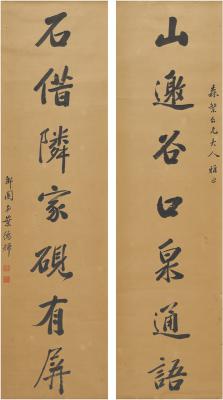 森槃台兄大人雅正
山邀谷口泉通語
石借隣家硯有屏
郋園弟葉德輝